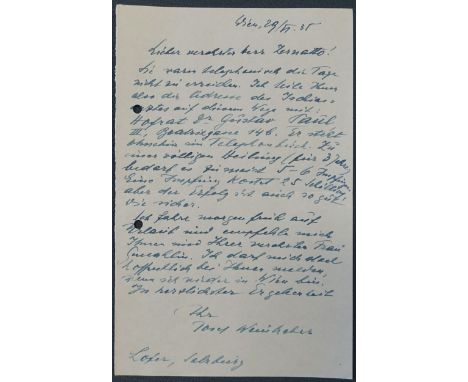 Wien, 29/VI. 35
Lieber verehrter Herr Zernatto!
Sie waren telephonisch die Tage
nicht zu erreichen. Ich teile Ihnen
also die Adresse des Ischias-
arztes auf diesem Wege mit:
Hofrat Dr Gustav Paul
III, Beatrixgasse 14b. Er steht
ohnehin im Telephonbuch. Zu
einer völligen Heilung (für 3 Jahre)
bedarf es zumeist 5-6 Impfungen.
Eine Impfung kostet 25 Schilling,
aber der Erfolg ist auch so gut
wie sicher.
Ich fahre morgen früh auf
Urlaub und empfehle mich
Ihnen und Ihrer verehrten Frau
Gemahlin. Ich darf mich dann
hoffentlich bei Ihnen melden,
wenn ich wieder in Wien bin.
In herzlichster Ergebenheit
Ihr
Josef Weinheber
Lofer, Salzburg